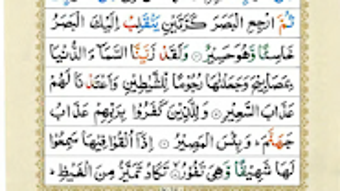 ثُمَّ ارْجِعِ الْبَصَرَ كَرَّتَيْنِ يَنْقَلِبْ اِلَيْكَ الْبَصَرُ
خَاسِئًا وَّهُوَ حَسِيْرٌ ۝ وَلَقَدْ زَيَّنَّا السَّمَآءَ الدُّنْيَا
بِمَصَابِيْحَ وَجَعَلْنٰهَا رُجُوْمًا لِّلشَّيٰطِيْنِ وَاَعْتَدْنَا لَهُمْ
عَذَابَ السَّعِيْرِ ۝ وَلِلَّذِيْنَ كَفَرُوْا بِرَبِّهِمْ عَذَابُ
جَهَنَّمَ ؕ وَبِئْسَ الْمَصِيْرُ ۝ اِذَآ اُلْقُوْا فِيْهَا سَمِعُوْا
لَهَا شَهِيْقًا وَّهِيَ تَفُوْرُ ۝ تَكَادُ تَمَيَّزُ مِنَ الْغَيْظِ ؕ